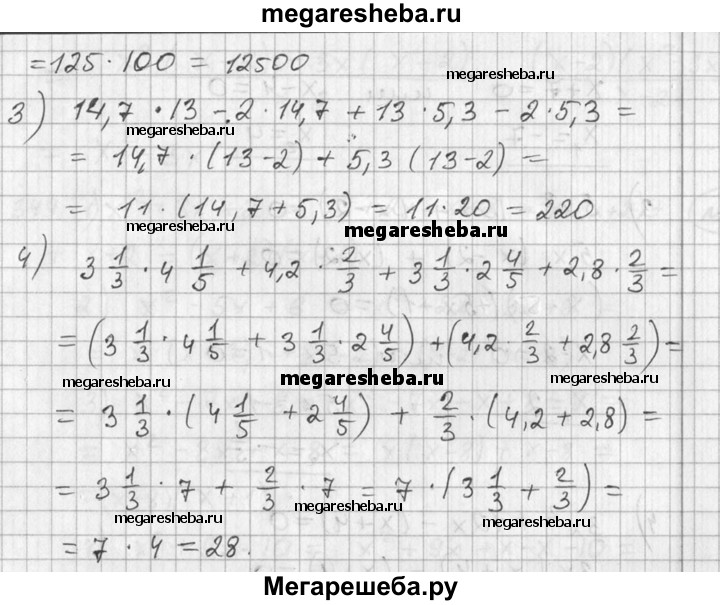 megaresheba.ru
= 125 · 100 = 12500
megaresheba.ru
3) 14,7 · 13 - 2 · 14,7 + 13 · 5,3 - 2 · 5,3 =
megaresheba.ru
= 14,7 · (13 - 2) + 5,3 (13 - 2) =
= 11 · (14,7 + 5,3) = 11 · 20 = 220
megaresheba.ru
megaresheba.ru
4) 3 1/3 · 4 1/5 + 4,2 · 2/3 + 3 1/3 · 2 4/5 + 2,8 · 2/3 =
= (3 1/3 · 4 1/5 + 3 1/3 · 2 4/5) + (4,2 · 2/3 + 2,8 2/3) =
megaresheba.ru megaresheba.ru megaresheba.ru
= 3 1/3 · (4 1/5 + 2 4/5) + 2/3 · (4,2 + 2,8) =
= 3 1/3 · 7 + 2/3 · 7 = 7 · (3 1/3 + 2/3) =
megaresheba.ru megaresheba.ru
= 7 · 4 = 28.
Мегарешеба.ру